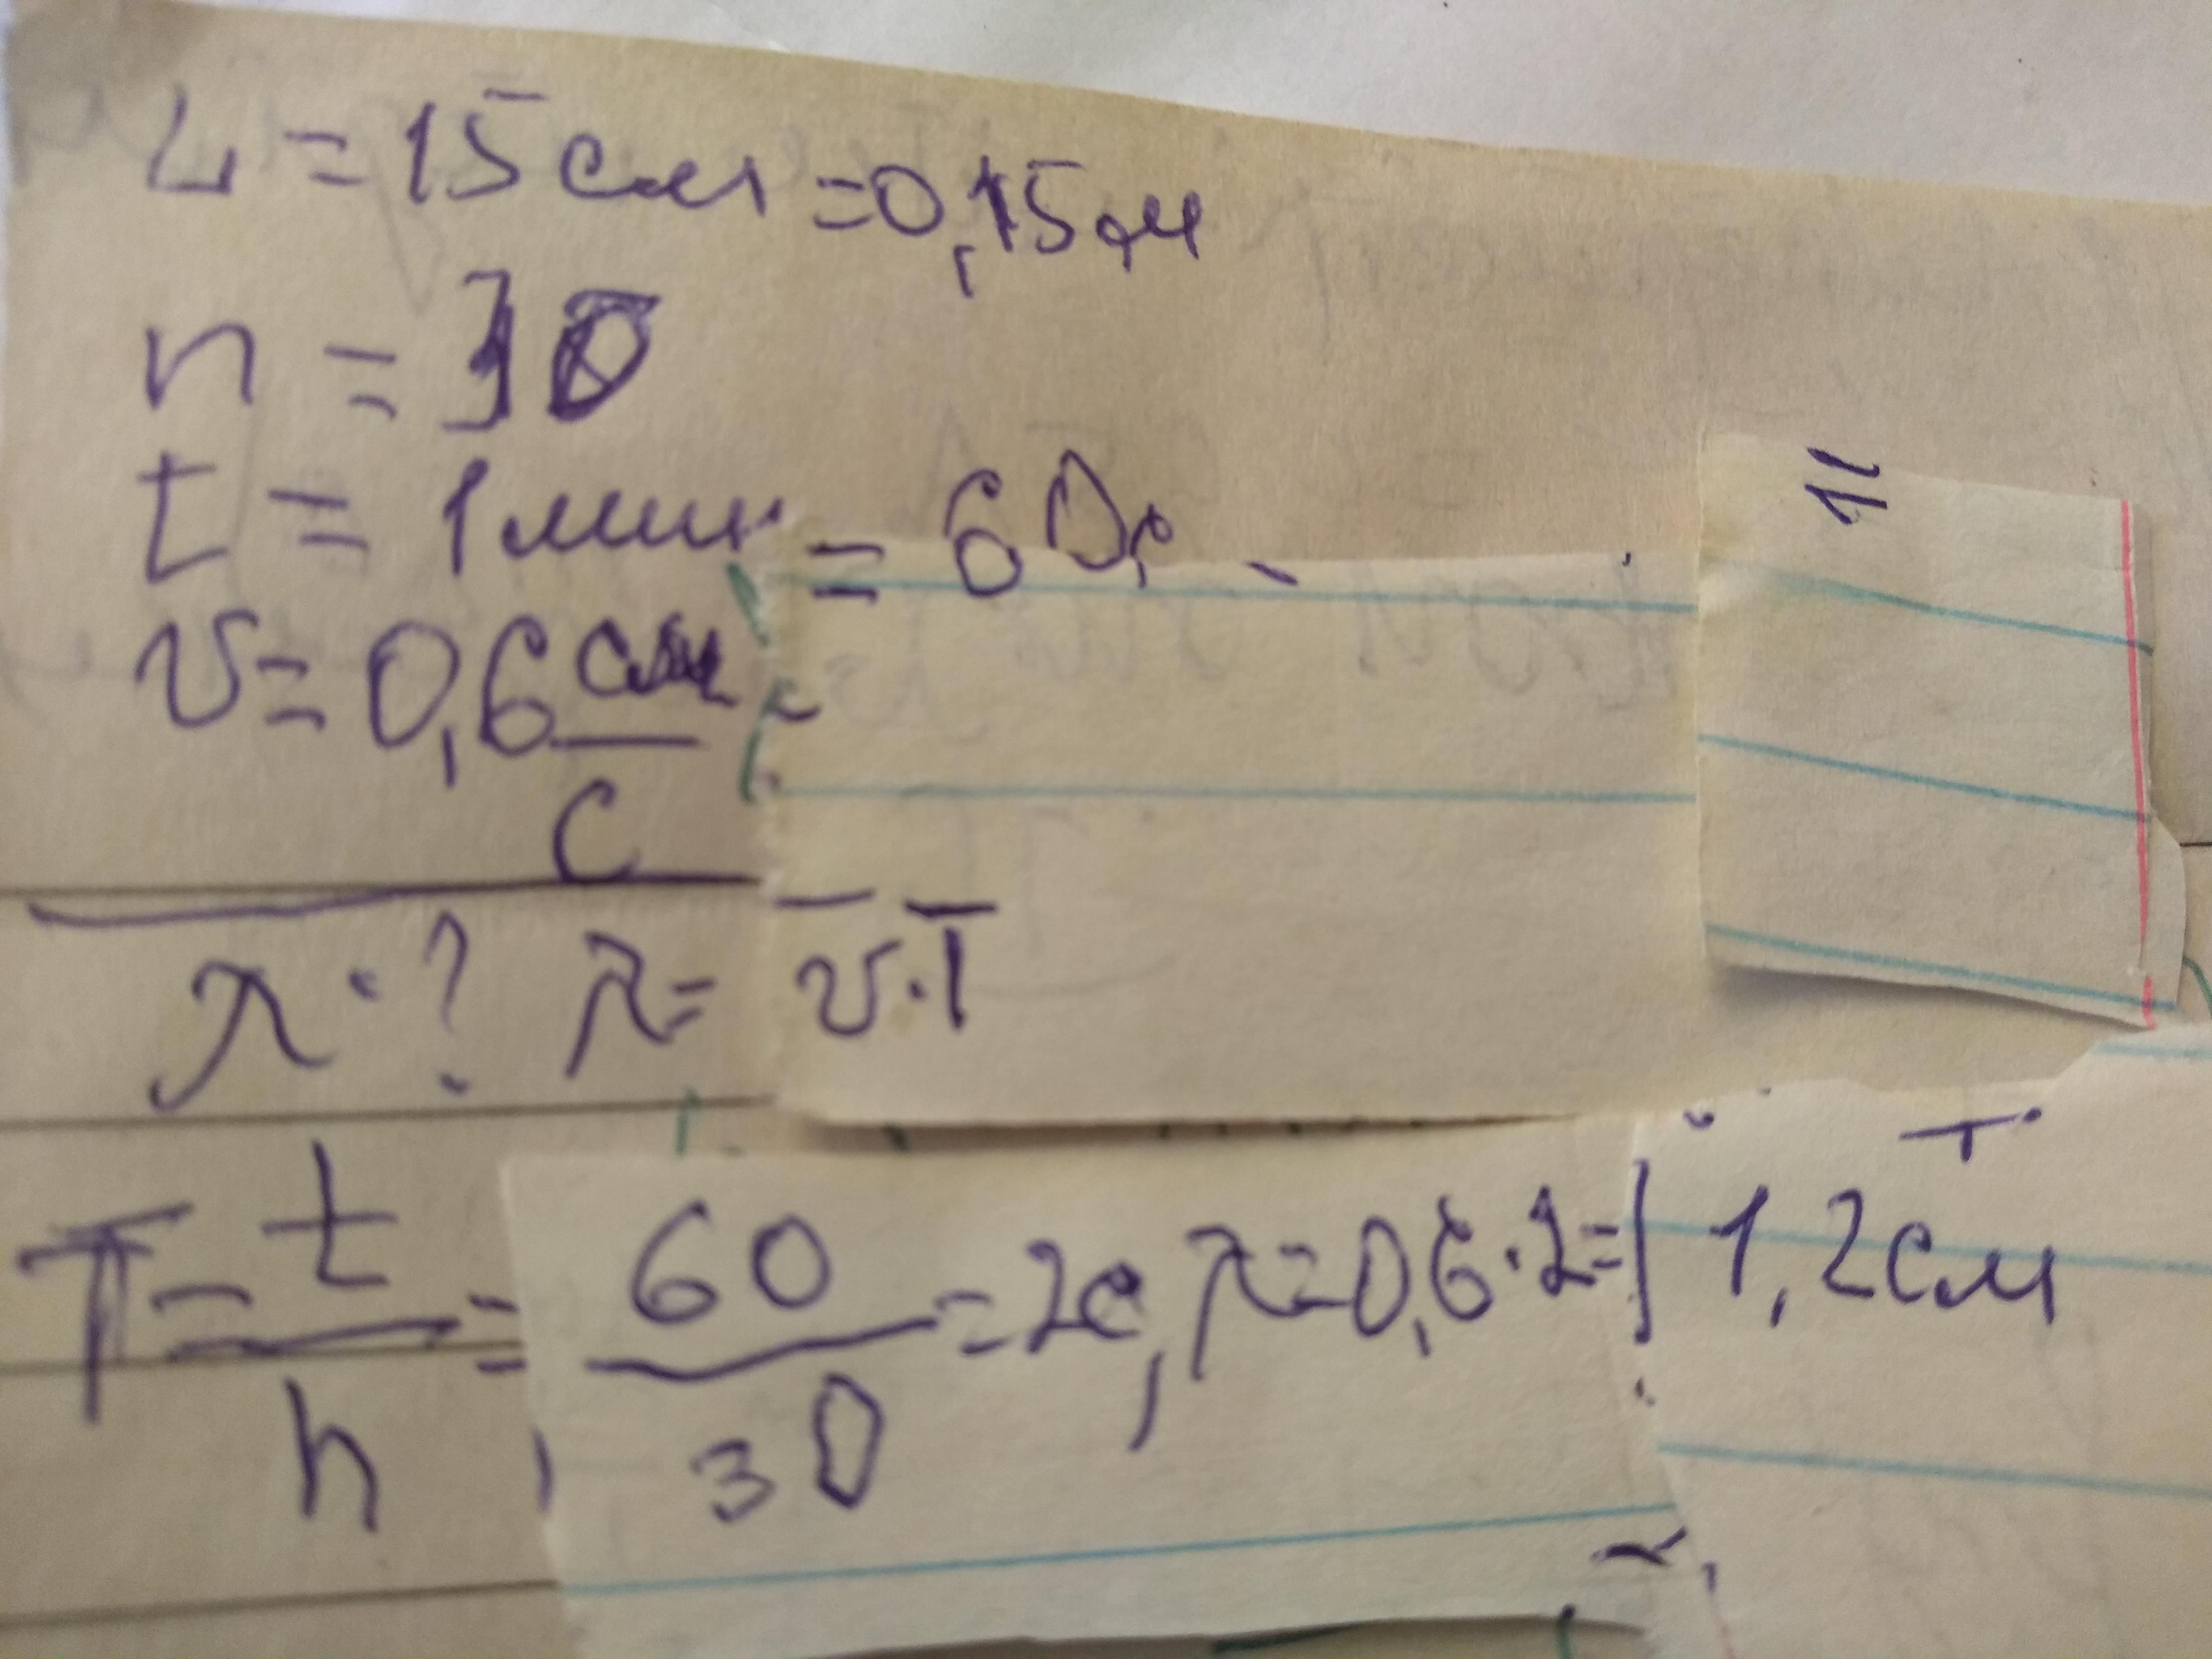 L = 15 см = 0,15 м
n = 30
t = 1 мин = 60с
v = 0,6 см/с
λ - ? λ = v·T
T = t/n = 60/30 = 2с, λ = 0,6·2 = 1,2см